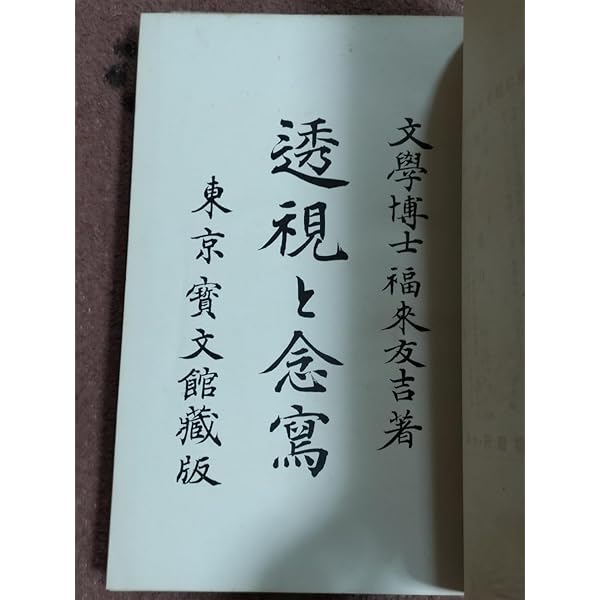 文學博士福來友吉著
透視と念寫
東京寶文館藏版